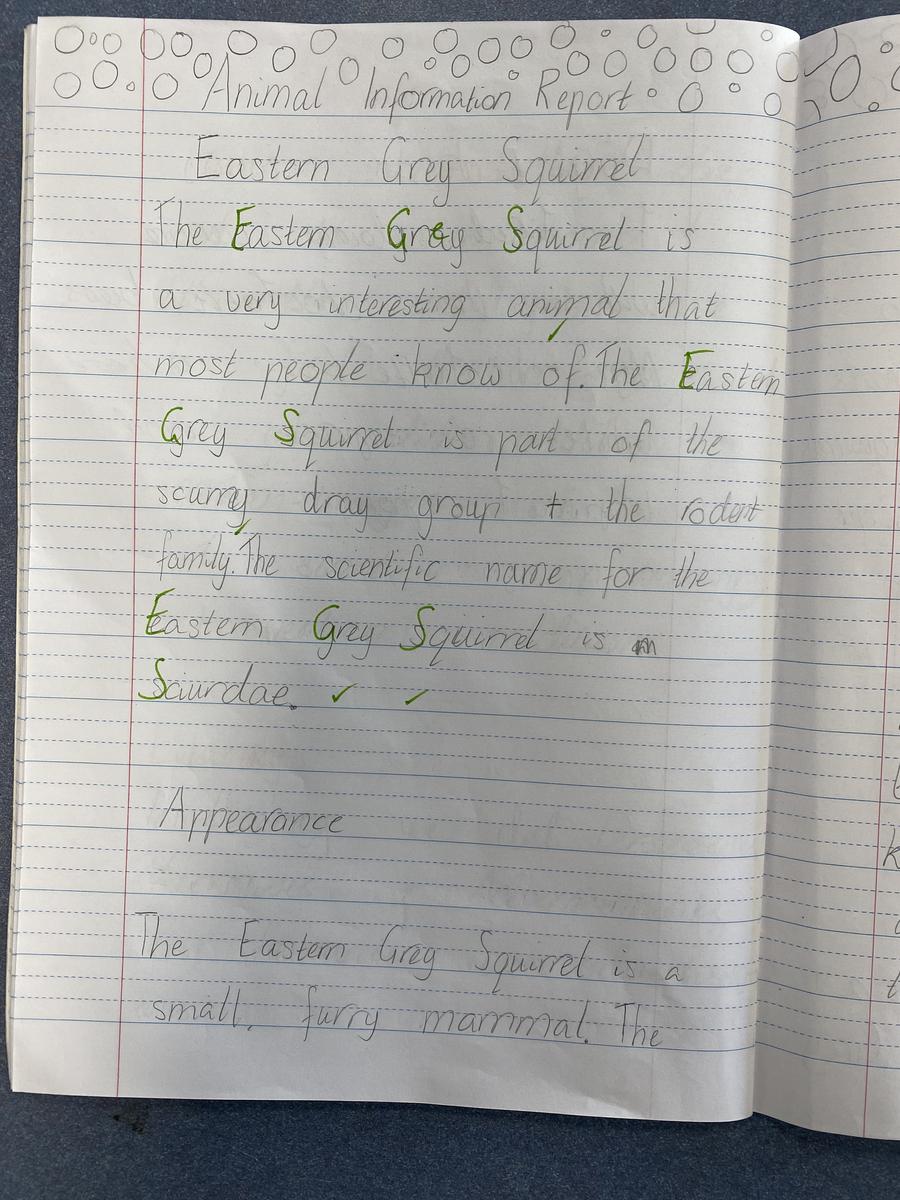 Animal Information Report
Eastern Grey Squirrel
The Eastern Grey Squirrel is
a very interesting animal that
most people know of. The Eastern
Grey Squirrel is part of the
scurry dray group + the rodent
family. The scientific name for the
Eastern Grey Squirrel is
Sciurdae.
Appearance
The Eastern Grey Squirrel is a
small, furry mammal. The